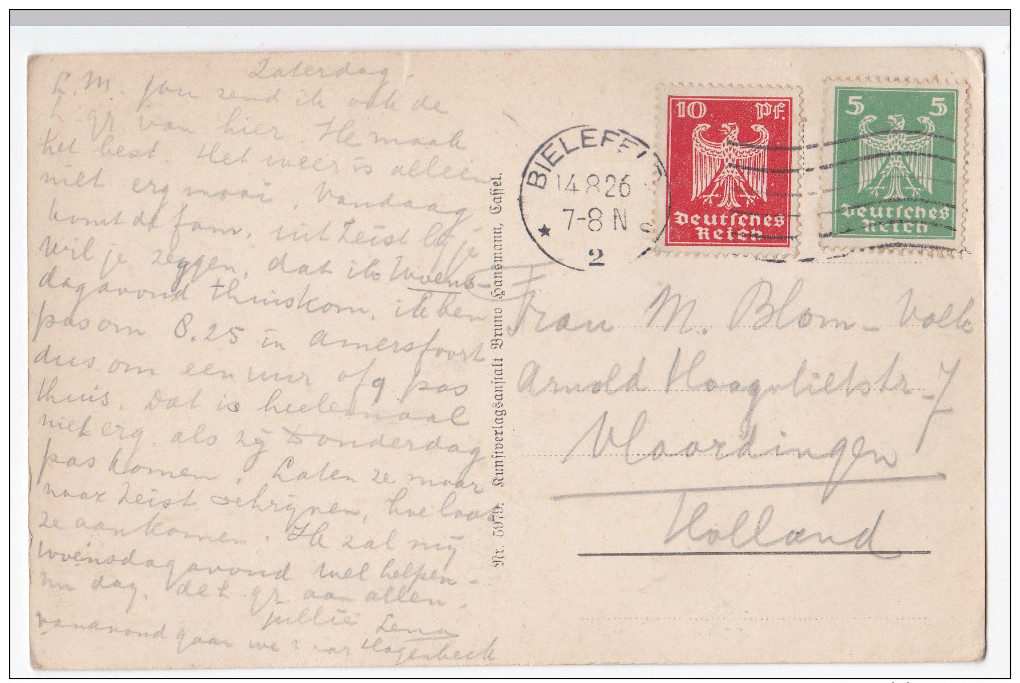 Zaterdag.
L. M. Jou zend ik ook de
h. gr van hier. Ik maak
het best. Het weer is alleen
niet erg mooi. Vandaag
komt de fam. uit Zeist
wil je zeggen, dat ik Woens-
dagavond thuiskom, ik ben
pas om 8.25 in Amersfoort
dus om een uur of 9 pas
thuis. Dat is heelemaal
niet erg als zij Donderdag
pas komen. Laten ze maar
naar Zeist schrijven, hoe laat
ze aankomen. Ik zal mij
Woensdagavond wel helpen.
nu dag. de h. gr aan allen.
jullie Lena
vanavond gaan we naar Hagenbeck
Nr. 5979. Kunstverlagsanstalt Bruno Hansmann, Cassel.
BIELEFELD
14.8.26
7-8 N
2
10 Pf.
Deutsches
Reich
5 5
Deutsches
Reich
Frau M. Blom-Volk
Arnold Hoogvlietstr. 7
Vlaardingen
Holland